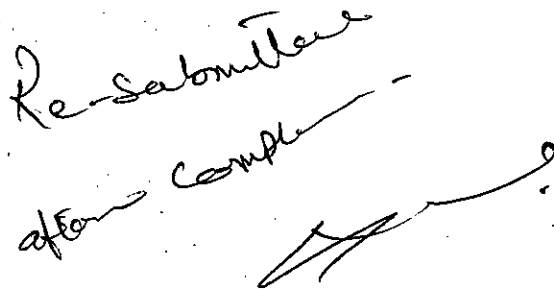 Re-submitted
after compl